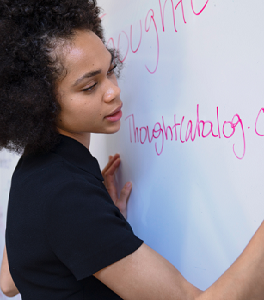 though
Thoughtcabalog.c